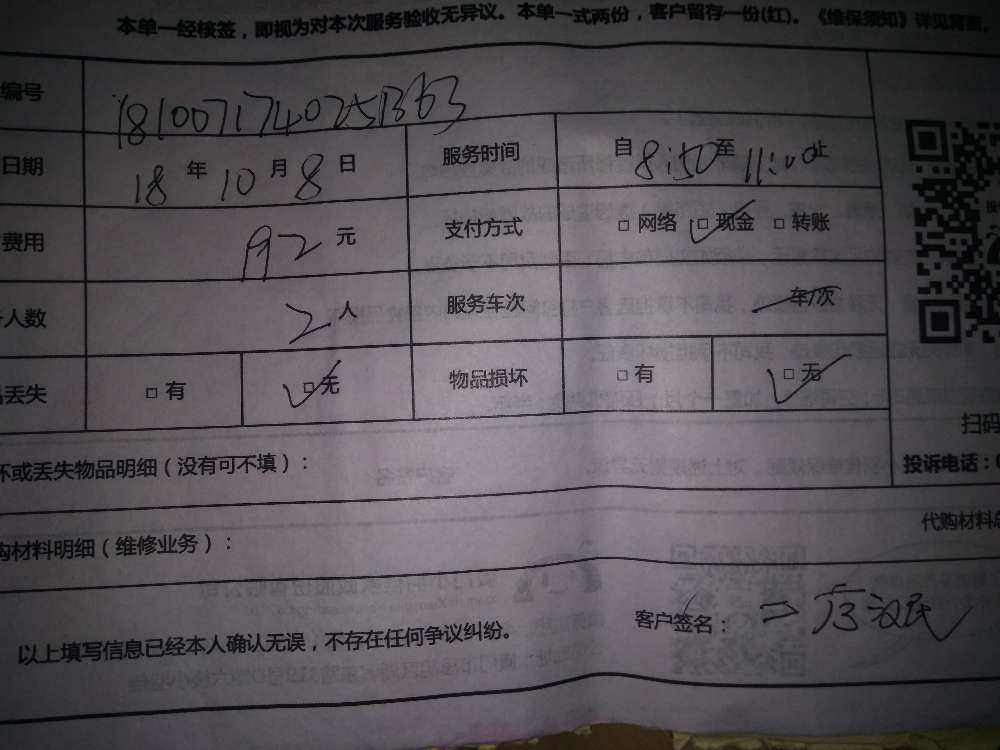 本单一经核签，即视为对本次服务验收无异议。本单一式两份，客户留存一份(红)。《维保须知》详见背面。
编号 1810071740251363
日期 18 年 10 月 8 日 服务时间 自 8:50 至 11:00 止
费用 92 元 支付方式 □ 网络 □ 现金 □ 转账
人数 2 人 服务车次 车/次
丢失 □ 有 □ 无 物品损坏 □ 有 □ 无
扫码
坏或丢失物品明细（没有可不填）：
投诉电话：0
购材料明细（维修业务）：
代购材料总
以上填写信息已经本人确认无误，不存在任何争议纠纷。
客户签名：